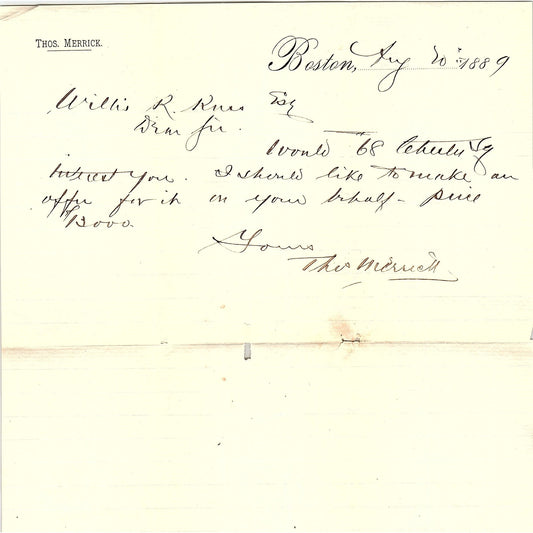 THOS. MERRICK.
Boston, Aug 20th 1889
Willis R. Russ Esq
Dear Sir.
Would 68 Chester Sq
interest you. I should like to make an
offer for it on your behalf - price
$13000.
Yours
Thos Merrick